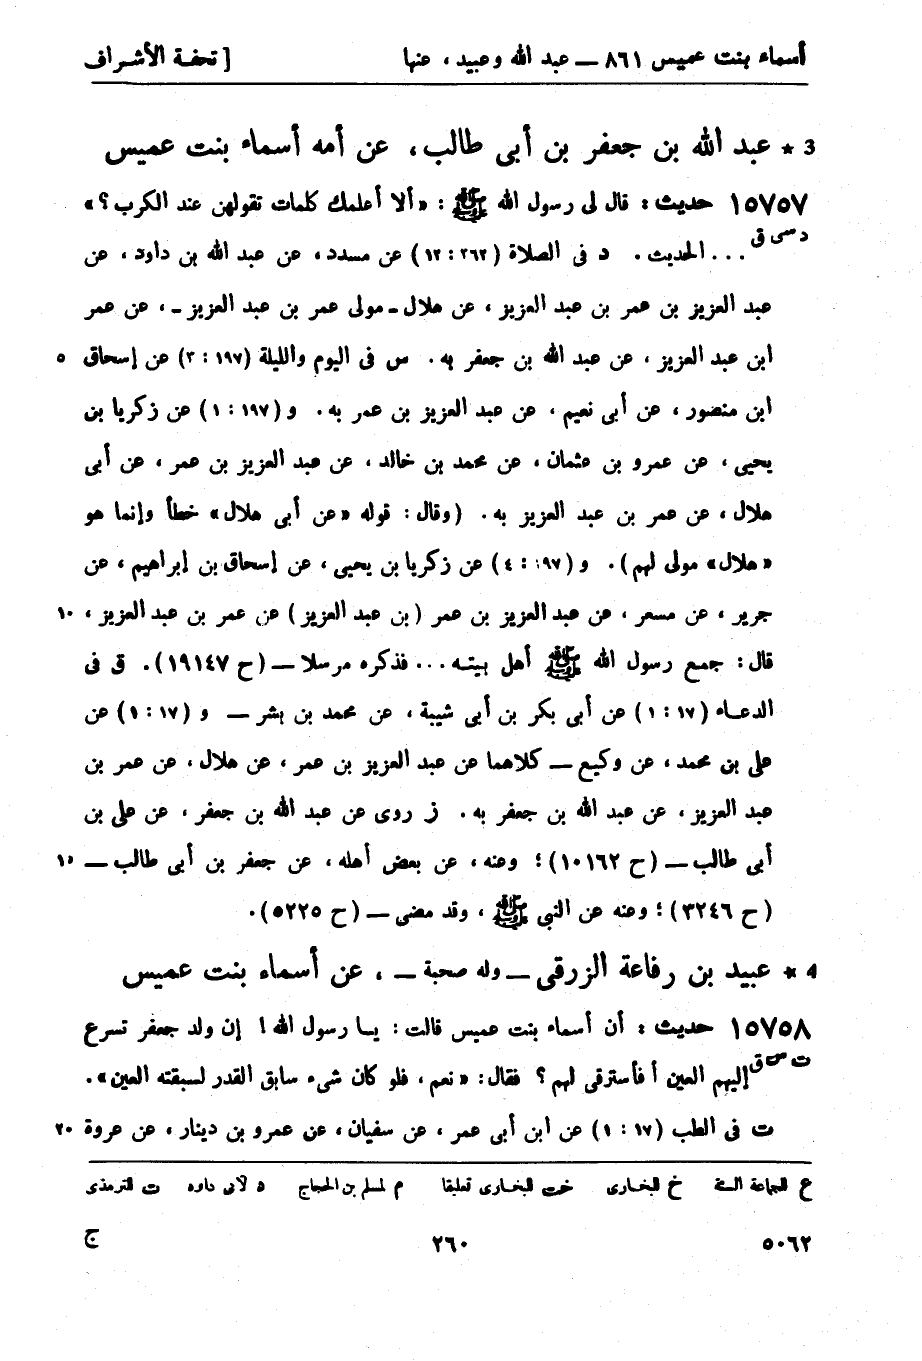 أسماء بنت عميس ٨٦١ — عبد الله وعبيد، عنها [ تحفة الأشراف
3 * عبد الله بن جعفر بن أبى طالب، عن أمه أسماء بنت عميس
١٥٧٥٧ حديث: قال لى رسول الله ﷺ: «ألا أعلمك كلمات تقولهن عند الكرب؟»
د سى ق ... الحديث. د فى الصلاة (٣٦٢: ١٢) عن مسدد، عن عبد الله بن داود، عن
عبد العزيز بن عمر بن عبد العزيز، عن هلال ـ مولى عمر بن عبد العزيز ـ، عن عمر
ابن عبد العزيز، عن عبد الله بن جعفر به. س فى اليوم والليلة (١٩٧: ٣) عن إسحاق ٥
ابن منصور، عن أبى نعيم، عن عبد العزيز بن عمر به. و(١٩٧: ١) عن زكريا بن
يحيى، عن عمرو بن عثمان، عن محمد بن خالد، عن عبد العزيز بن عمر، عن أبى
هلال، عن عمر بن عبد العزيز به. (وقال: قوله «عن أبى هلال» خطأ وإنما هو
«هلال» مولى لهم). و(١٩٧: ٤) عن زكريا بن يحيى، عن إسحاق بن إبراهيم، عن
جرير، عن مسعر، عن عبد العزيز بن عمر (بن عبد العزيز) عن عمر بن عبد العزيز، ١٠
قال: جمع رسول الله ﷺ أهل بيته... فذكره مرسلا — (ح ١٩١٤٧). ق فى
الدعاء (١٧: ١) عن أبى بكر بن أبى شيبة، عن محمد بن بشر — و(١٧: ١) عن
على بن محمد، عن وكيع — كلاهما عن عبد العزيز بن عمر، عن هلال، عن عمر بن
عبد العزيز، عن عبد الله بن جعفر به. ز روى عن عبد الله بن جعفر، عن على بن
أبى طالب — (ح ١٠١٦٢)؛ وعنه، عن بعض أهله، عن جعفر بن أبى طالب — ١٥
(ح ٣٢٤٦)؛ وعنه عن النبى ﷺ، وقد مضى — (ح ٥٢٢٥).
4 * عبيد بن رفاعة الزرقى — وله صحبة —، عن أسماء بنت عميس
١٥٧٥٨ حديث: أن أسماء بنت عميس قالت: يا رسول الله! إن ولد جعفر تسرع
ت س ق إليهم العين أ فأسترقى لهم؟ فقال: «نعم، فلو كان شىء سابق القدر لسبقته العين».
ت فى الطب (١٧: ١) عن ابن أبى عمر، عن سفيان، عن عمرو بن دينار، عن عروة ٢٠
ع للجماعة الستة خ للبخارى خت للبخارى تعليقا م لمسلم بن الحجاج د لأبى داود ت للترمذى
٥٠٦٢ ٢٦٠ ج